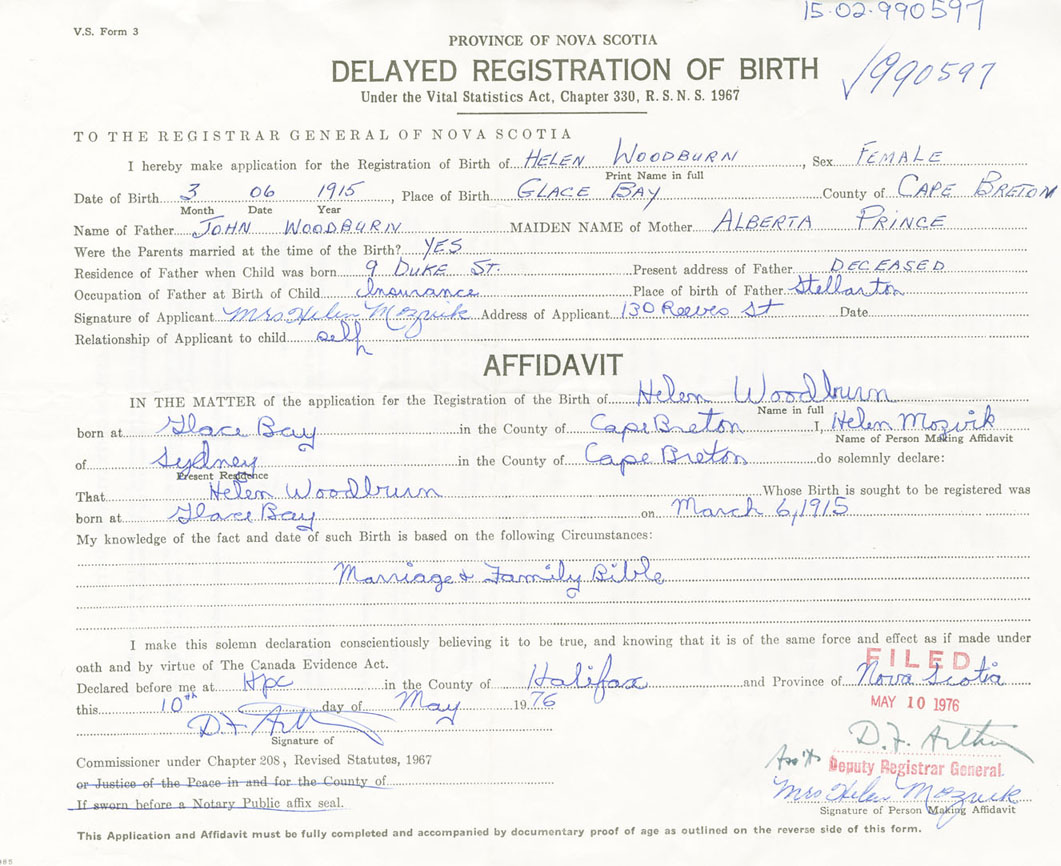 15-02-990597
V.S. Form 3
PROVINCE OF NOVA SCOTIA
DELAYED REGISTRATION OF BIRTH
√990597
Under the Vital Statistics Act, Chapter 330, R. S. N. S. 1967
TO THE REGISTRAR GENERAL OF NOVA SCOTIA
I hereby make application for the Registration of Birth of HELEN WOODBURN, Sex FEMALE
Print Name in full
Date of Birth 3 06 1915, Place of Birth GLACE BAY County of CAPE BRETON
Month Date Year
Name of Father JOHN WOODBURN MAIDEN NAME of Mother ALBERTA PRINCE
Were the Parents married at the time of the Birth? YES
Residence of Father when Child was born 9 DUKE ST. Present address of Father DECEASED
Occupation of Father at Birth of Child Insurance Place of birth of Father Stellarton
Signature of Applicant Mrs Helen Mozvik Address of Applicant 130 Reeves St Date
Relationship of Applicant to child self
AFFIDAVIT
IN THE MATTER of the application for the Registration of the Birth of Helen Woodburn
Name in full
born at Glace Bay in the County of Cape Breton I, Helen Mozvik
Name of Person Making Affidavit
of Sydney in the County of Cape Breton do solemnly declare:
Present Residence
That Helen Woodburn Whose Birth is sought to be registered was
born at Glace Bay on March 6, 1915
My knowledge of the fact and date of such Birth is based on the following Circumstances:
Marriage & Family Bible
I make this solemn declaration conscientiously believing it to be true, and knowing that it is of the same force and effect as if made under
oath and by virtue of The Canada Evidence Act.
FILED
Declared before me at Hfx in the County of Halifax and Province of Nova Scotia
this 10th day of May 1976
MAY 10 1976
D.F. Arthur
Signature of
D.F. Arthur
Commissioner under Chapter 208, Revised Statutes, 1967
Ass't Deputy Registrar General.
or Justice of the Peace in and for the County of
Mrs Helen Mozvik
If sworn before a Notary Public affix seal.
Signature of Person Making Affidavit
This Application and Affidavit must be fully completed and accompanied by documentary proof of age as outlined on the reverse side of this form.